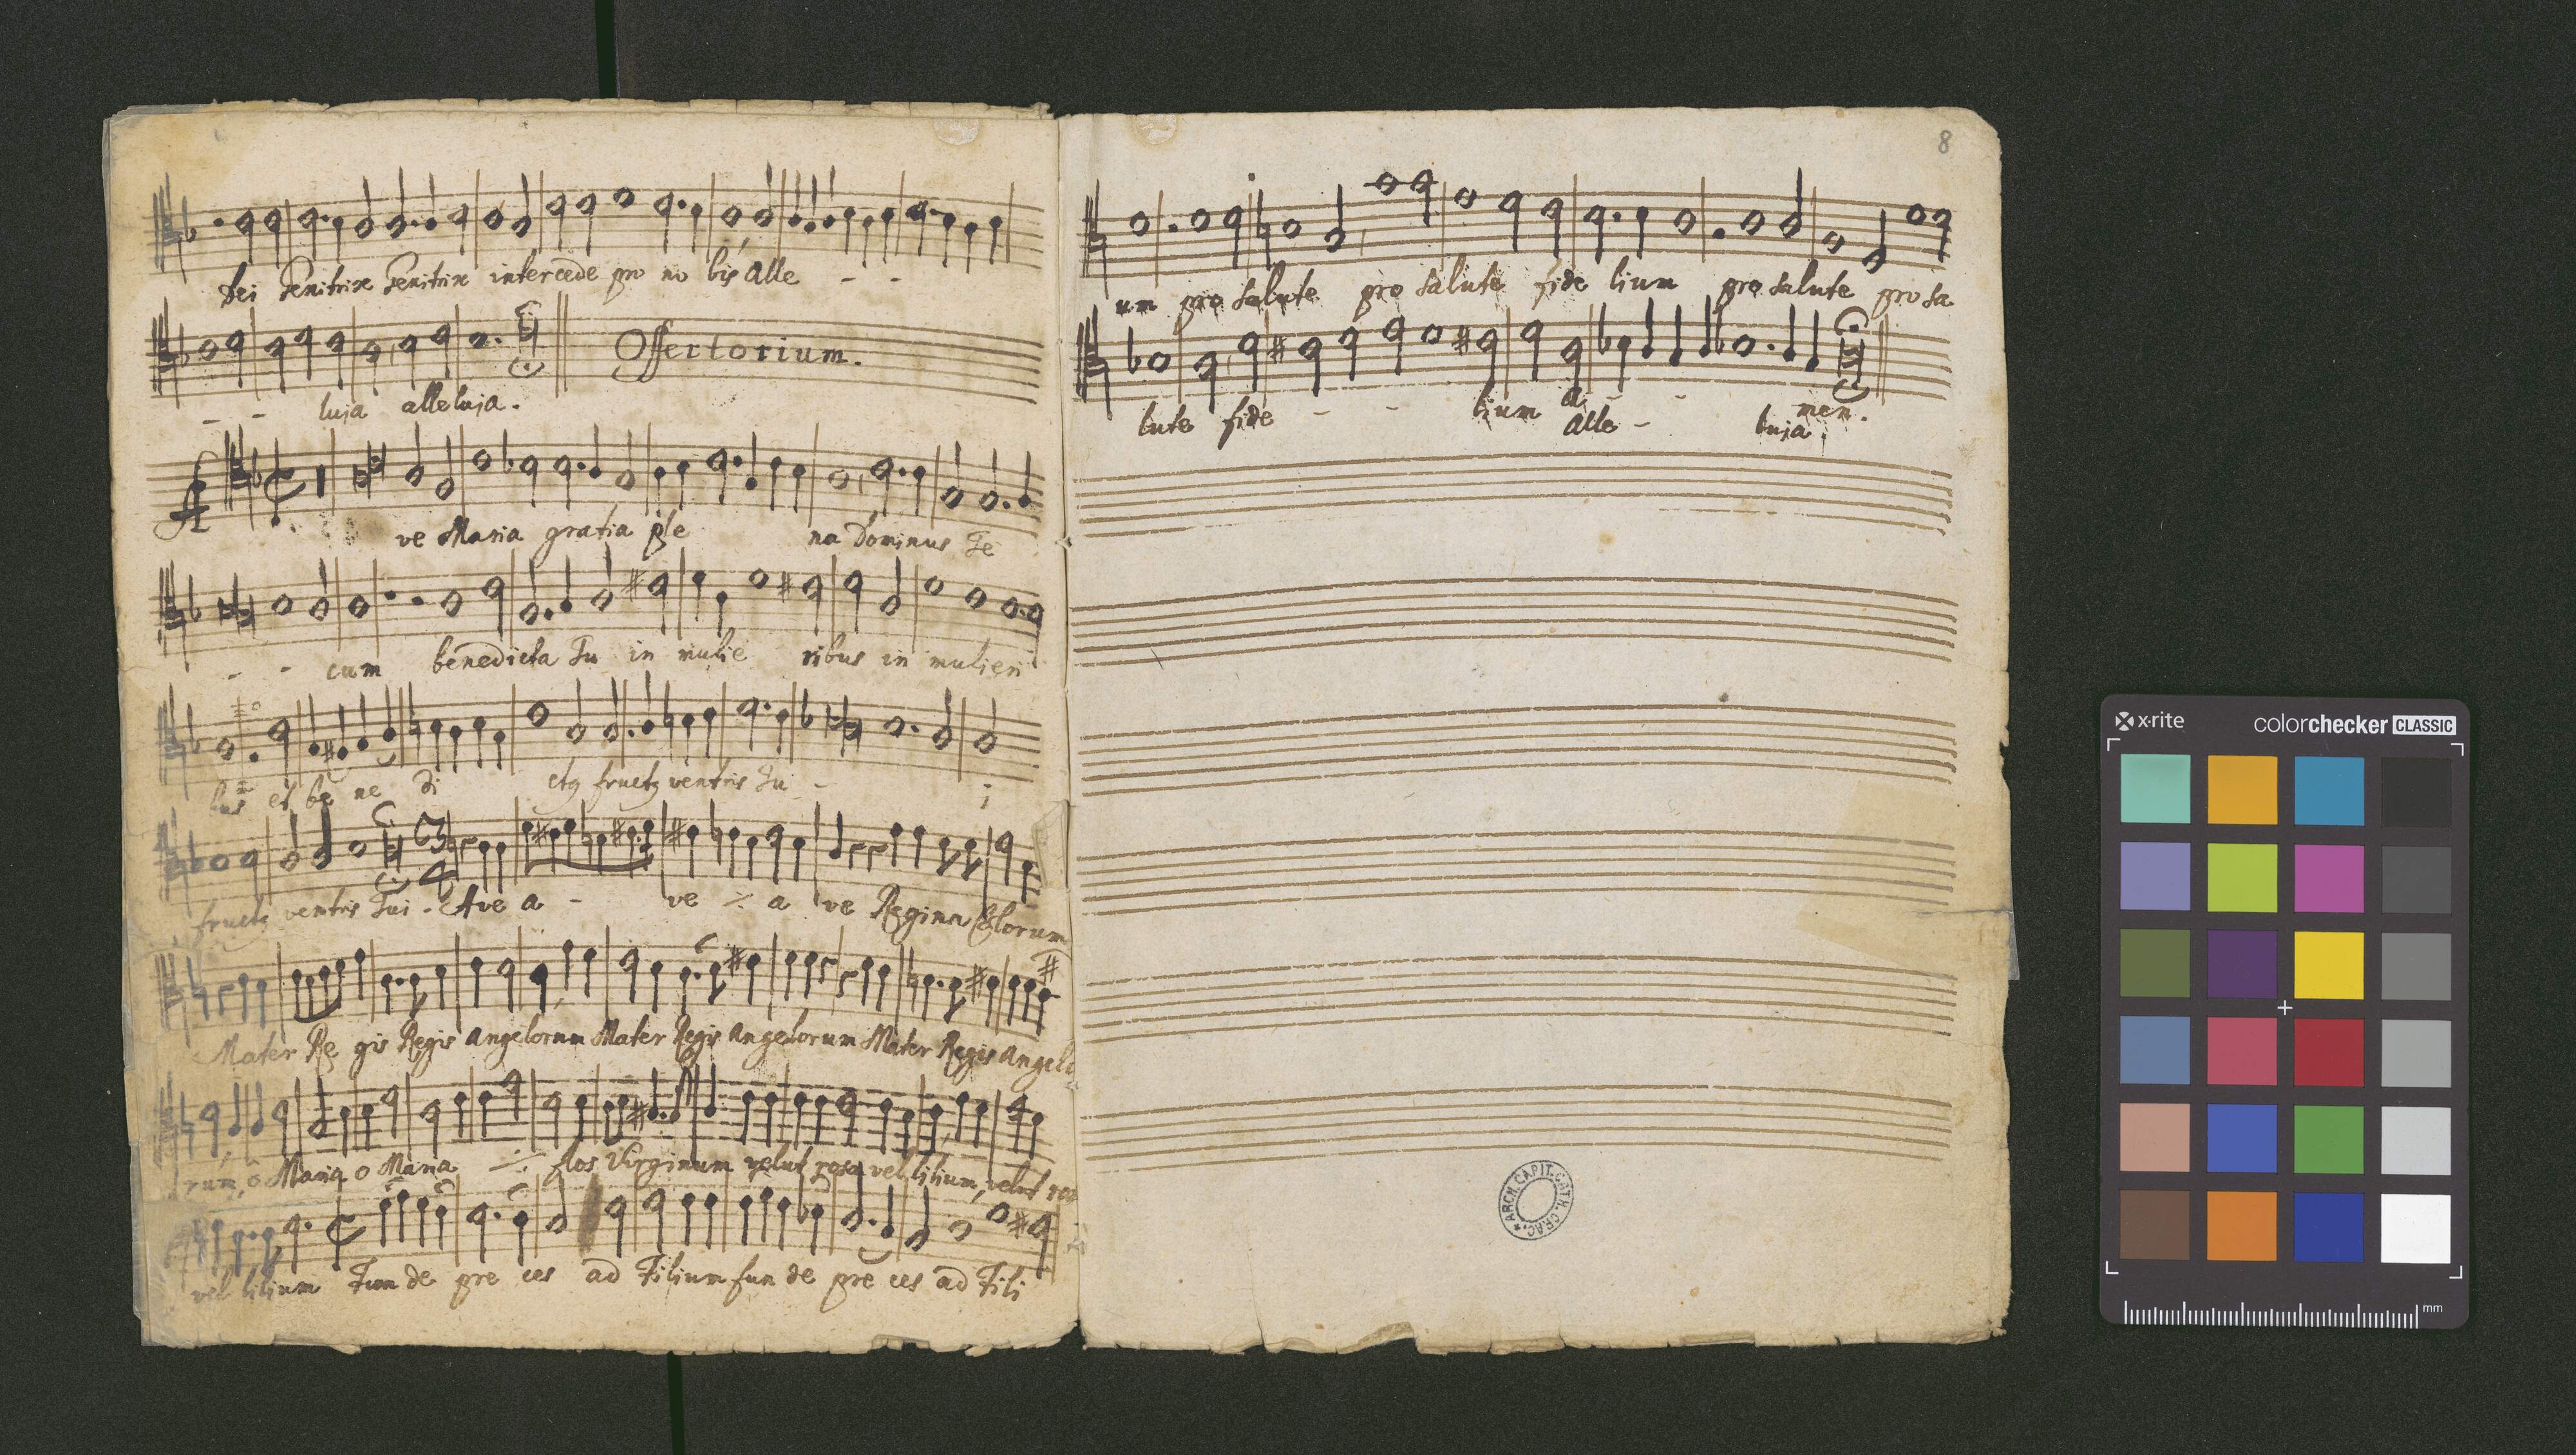 Dei Genitrix Genitrix intercede pro no bis alle - -
Offertorium.
- - luja alleluja.
A ve Maria gratia ple na Dominus Te
- - cum benedicta Tu in mulie ribus in mulieri
bus et be ne di ctq fructq ventris Tu - i
fructq ventris Tui - Ave a - ve ⁒ a ve Regina Cælorum
3
4
Mater Re gis Regis Angelorum Mater Regis Angelorum Mater Regis Angelo
rum, ô Maria o Maria ⁒ flos Virginum velut rosa vel lilium, velut ros
vel lilium Fun de pre ces ad Filium fun de pre ces ad Fili
8
um pro salute pro salute fide lium pro salute pro sa
lute fide - - lium a - - men.
Alle - luja.
ARCH. CAPIT. CATH. CRAC.
x·rite colorchecker CLASSIC
mm